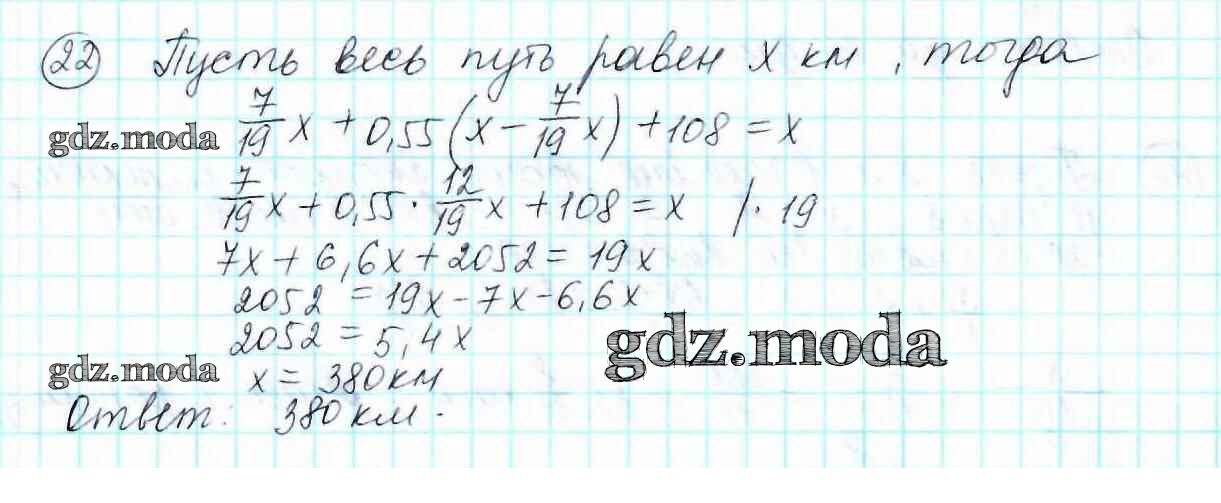 22 Пусть весь путь равен x км, тогда
gdz.moda 7/19 x + 0,55 (x - 7/19 x) + 108 = x
7/19 x + 0,55 · 12/19 x + 108 = x /· 19
7x + 6,6x + 2052 = 19x
2052 = 19x - 7x - 6,6x
2052 = 5,4x gdz.moda
gdz.moda x = 380 км
Ответ: 380 км.